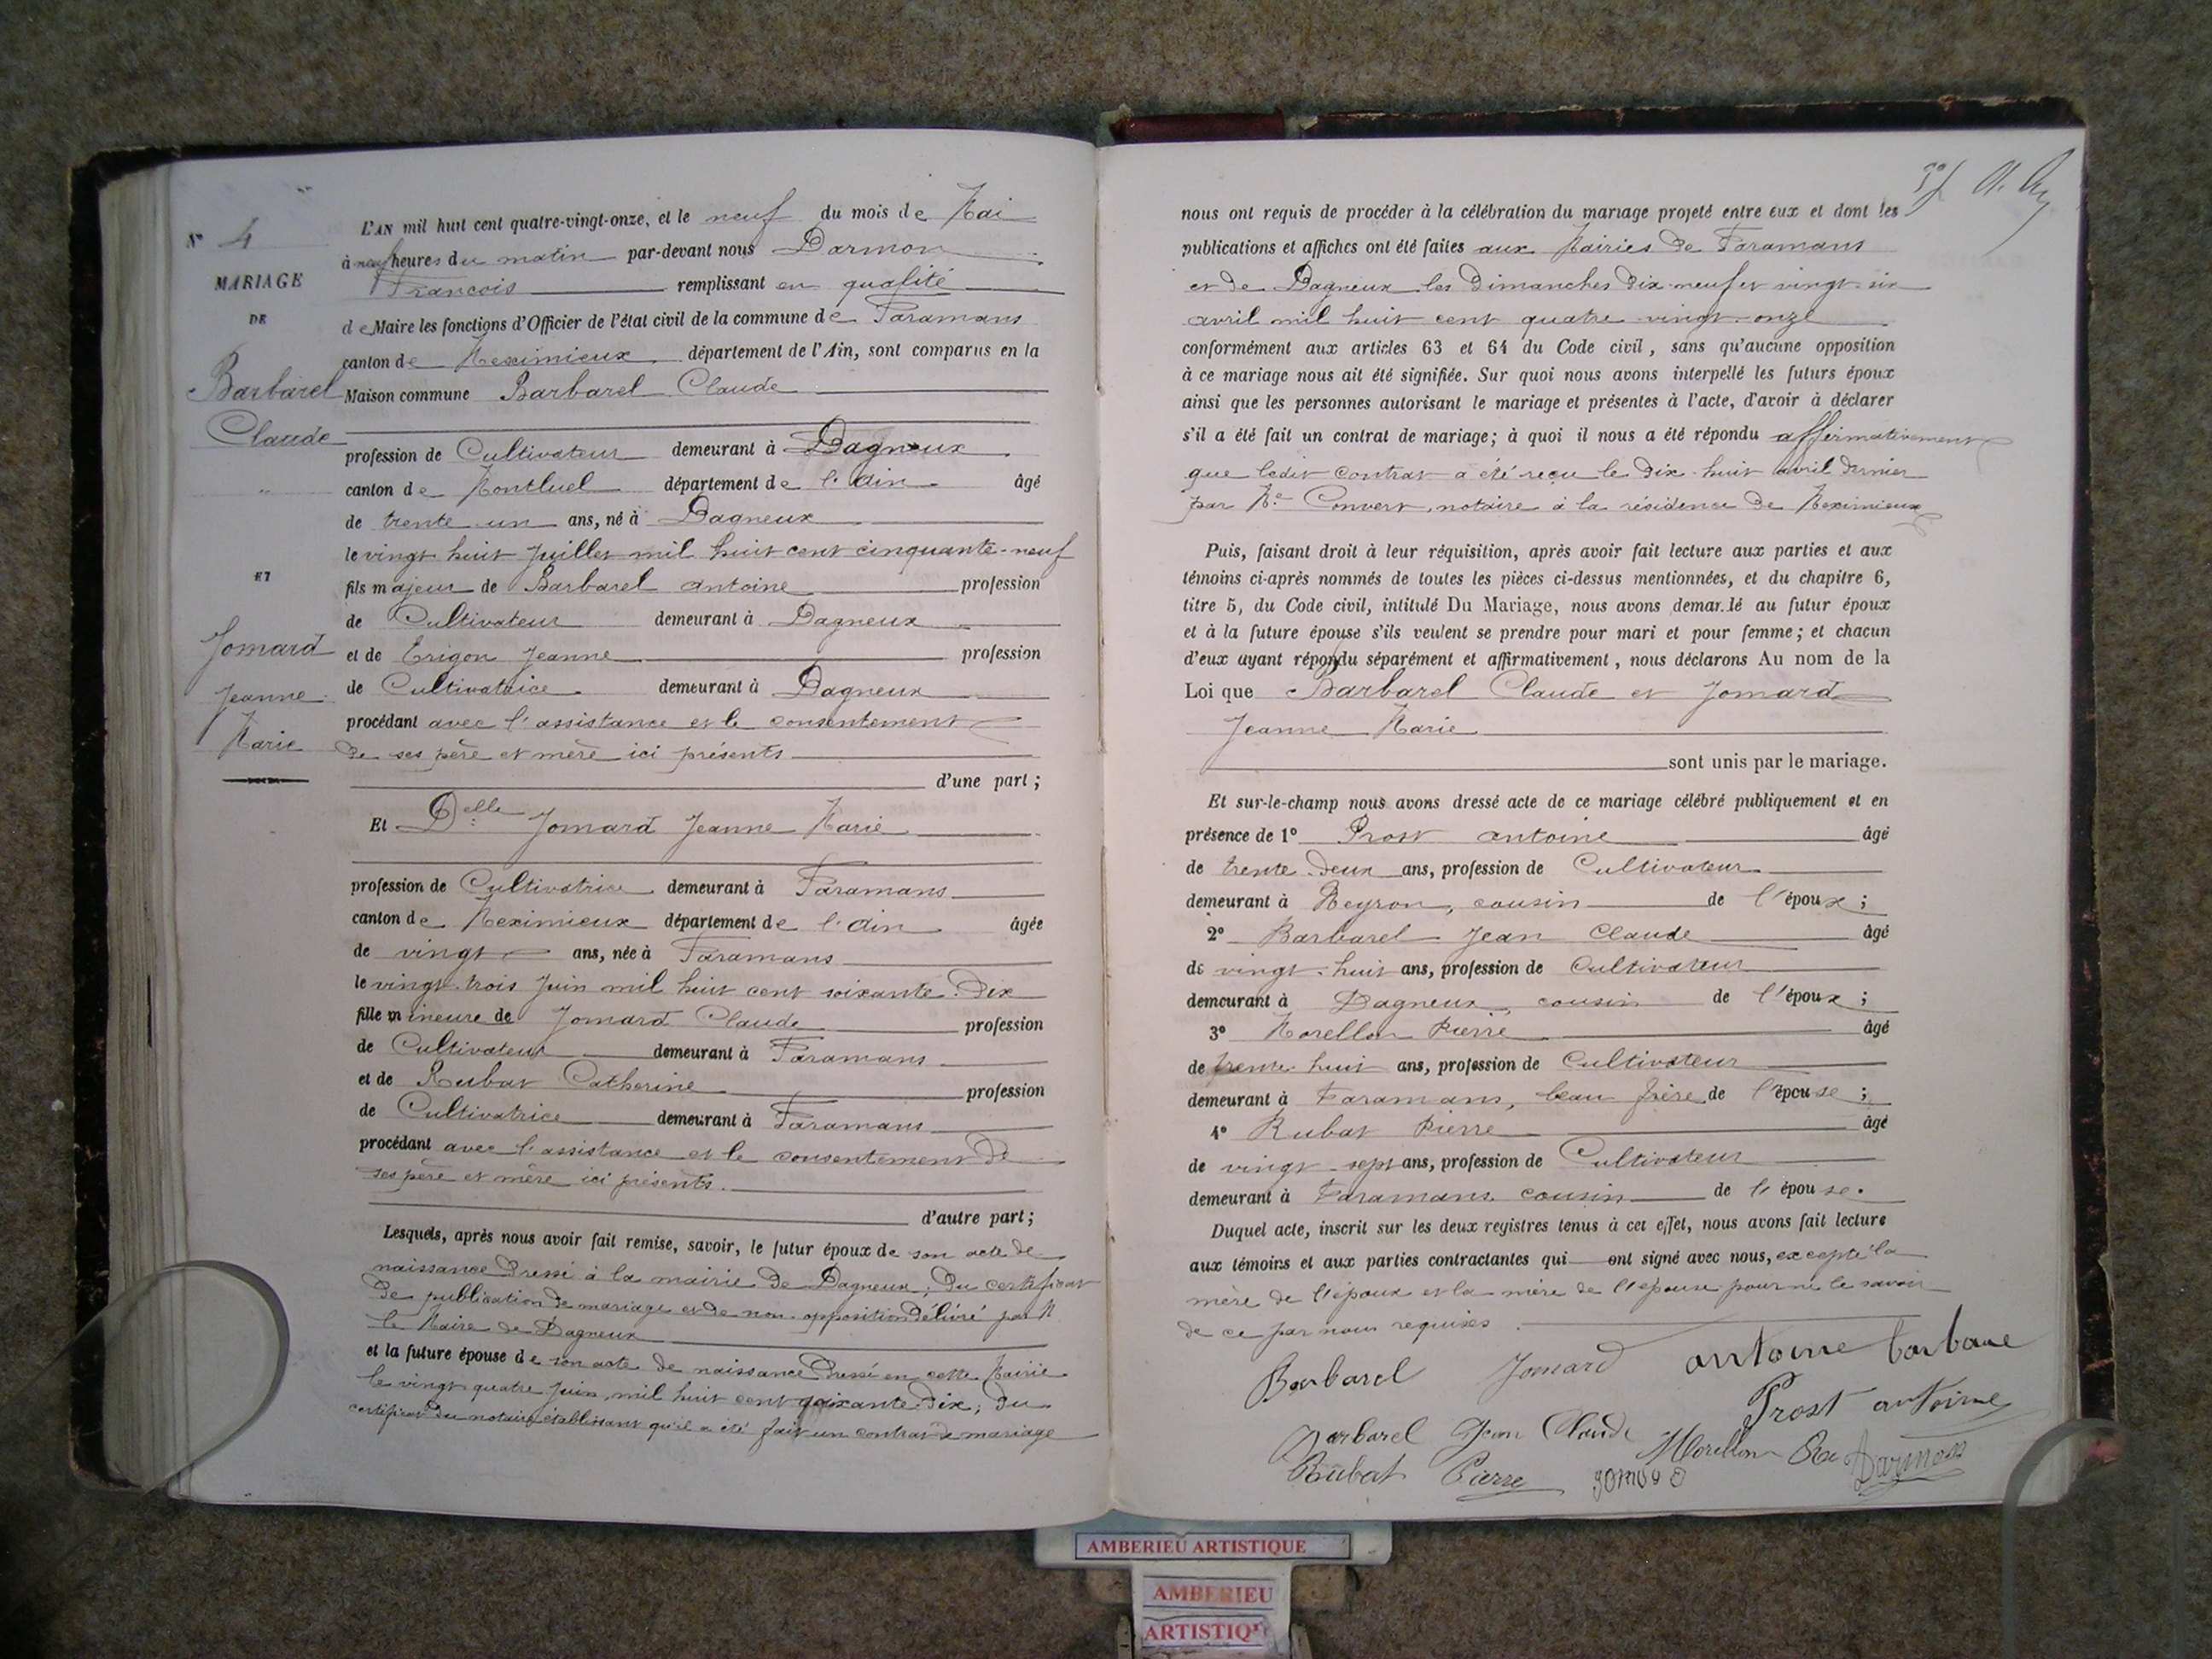 N° 4
MARIAGE
DE
Barbarel
Claude
ET
Jomard
Jeanne
Marie
L'AN mil huit cent quatre-vingt-onze, et le neuf du mois de Mai
à neuf heures du matin par-devant nous Darmon
François remplissant en qualité
de Maire les fonctions d'Officier de l'état civil de la commune de Faramans
canton de Meximieux département de l'Ain, sont comparus en la
Maison commune Barbarel Claude
profession de Cultivateur demeurant à Dagneux
canton de Montluel département de l'Ain âgé
de trente un ans, né à Dagneux
le vingt huit Juillet mil huit cent cinquante-neuf
fils majeur de Barbarel Antoine profession
de Cultivateur demeurant à Dagneux
et de Erigon Jeanne profession
de Cultivatrice demeurant à Dagneux
procédant avec l'assistance et le consentement
de ses père et mère ici présents
d'une part ;
Et Delle Jomard Jeanne Marie
profession de Cultivatrice demeurant à Faramans
canton de Meximieux département de l'Ain âgée
de vingt ans, née à Faramans
le vingt-trois Juin mil huit cent soixante-dix
fille mineure de Jomard Claude profession
de Cultivateur demeurant à Faramans
et de Rubat Catherine profession
de Cultivatrice demeurant à Faramans
procédant avec l'assistance et le consentement de
ses père et mère ici présents.
d'autre part ;
Lesquels, après nous avoir fait remise, savoir, le futur époux de son acte de
naissance dressé à la mairie de Dagneux ; du certificat
de publication de mariage et de non-opposition délivré par M
le Maire de Dagneux
et la future épouse de son acte de naissance dressé en cette Mairie
le vingt quatre Juin, mil huit cent soixante-dix ; du
certificat du notaire établissant qu'il a été fait un contrat de mariage
nous ont requis de procéder à la célébration du mariage projeté entre eux et dont les
publications et affiches ont été faites aux Mairies de Faramans
et de Dagneux les dimanches dix-neuf et vingt-six
avril mil huit cent quatre-vingt-onze
conformément aux articles 63 et 64 du Code civil, sans qu'aucune opposition
à ce mariage nous ait été signifiée. Sur quoi nous avons interpellé les futurs époux
ainsi que les personnes autorisant le mariage et présentes à l'acte, d'avoir à déclarer
s'il a été fait un contrat de mariage ; à quoi il nous a été répondu affirmativement
que ledit contrat a été reçu le dix-huit avril dernier
par Me Convert, notaire à la résidence de Meximieux
Puis, faisant droit à leur réquisition, après avoir fait lecture aux parties et aux
témoins ci-après nommés de toutes les pièces ci-dessus mentionnées, et du chapitre 6,
titre 5, du Code civil, intitulé Du Mariage, nous avons demandé au futur époux
et à la future épouse s'ils veulent se prendre pour mari et pour femme ; et chacun
d'eux ayant répondu séparément et affirmativement, nous déclarons Au nom de la
Loi que Barbarel Claude et Jomard
Jeanne Marie
sont unis par le mariage.
Et sur-le-champ nous avons dressé acte de ce mariage célébré publiquement et en
présence de 1° Prost Antoine âgé
de trente-deux ans, profession de Cultivateur
demeurant à Neyron, cousin de l'époux ;
2° Barbarel Jean Claude âgé
de vingt-huit ans, profession de Cultivateur
demeurant à Dagneux, cousin de l'époux ;
3° Morellon Pierre âgé
de trente-huit ans, profession de Cultivateur
demeurant à Faramans, beau frère de l'épouse ;
4° Rubat Pierre âgé
de vingt-sept ans, profession de Cultivateur
demeurant à Faramans cousin de l'épouse.
Duquel acte, inscrit sur les deux registres tenus à cet effet, nous avons fait lecture
aux témoins et aux parties contractantes qui ont signé avec nous, excepté la
mère de l'époux et la mère de l'épouse pour ne le savoir
de ce par nous requises.
Barbarel Jomard antoine barbarel
Prost antoine
Barbarel Jean Claude Morellon
Rubat Pierre Jomard Darmon
AMBERIEU ARTISTIQUE
AMBERIEU
ARTISTIQ